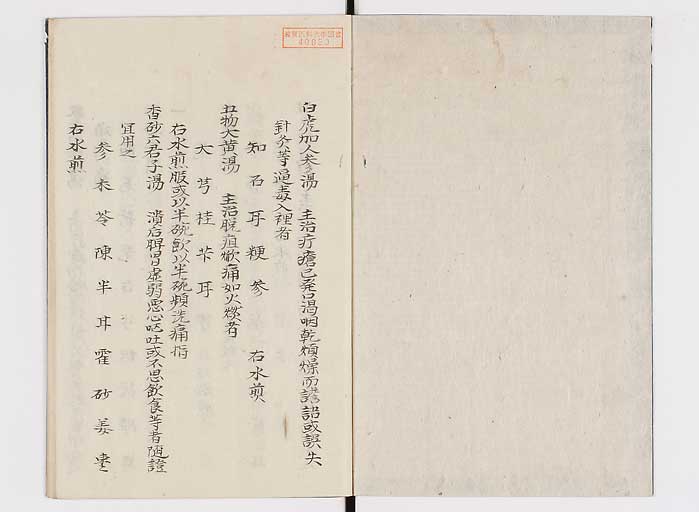 白虎加人参湯　主治疔瘡已発口渇咽乾煩燥而譫語或誤失
針灸等逼毒入裡者
知　石　耳　粳　参　右水煎
丑物大黄湯　主治脱疽焮痛如火燃者
大　芎　桂　芐　耳
右水煎服或以半碗飲以半碗頻洗痛指
香砂六君子湯　潰后脾胃虚弱悪心嘔吐或不思飲食等者随證
宜用之
参　朮　苓　陳　半　耳　藿　砂　姜　棗
右水煎
40080